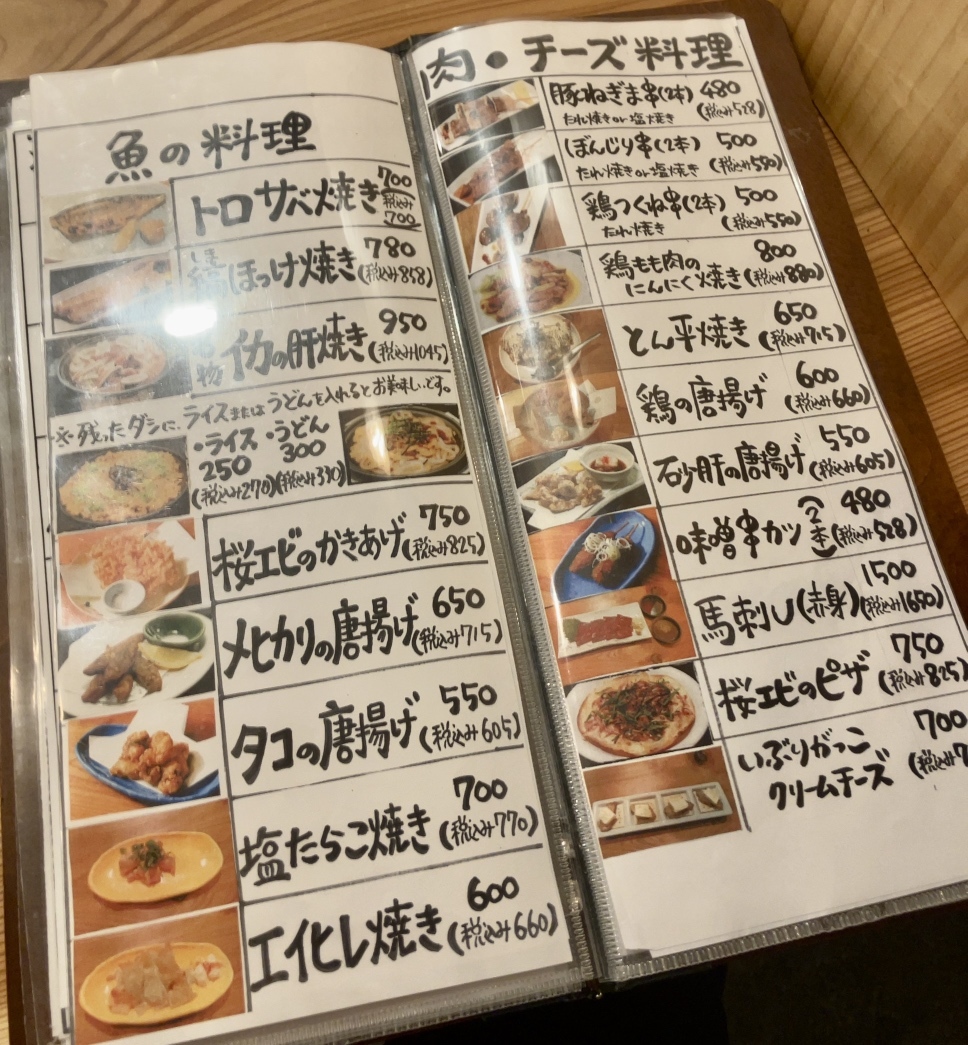 魚の料理
トロサバ焼き 700
税込み
700
しま
ほっけ焼き 780
(税込み858)
物 イカの肝焼き 950
(税込み1045)
※残ったダシに、ライスまたはうどんを入れるとお美味しいです。
・ライス ・うどん
250 300
(税込み270)(税込み330)
桜エビのかきあげ 750
(税込み825)
メヒカリの唐揚げ 650
(税込み715)
タコの唐揚げ 550
(税込み605)
塩たらこ焼き 700
(税込み770)
エイヒレ焼き 600
(税込み660)
肉・チーズ料理
豚ねぎま串(2本) 480
たれ焼きor塩焼き (税込み528)
ぼんじり串(2本) 500
たれ焼きor塩焼き (税込み550)
鶏つくね串(2本) 500
たれ焼き (税込み550)
鶏もも肉の 800
にんにく焼き (税込み880)
とん平焼き 650
(税込み715)
鶏の唐揚げ 600
(税込み660)
砂肝の唐揚げ 550
(税込み605)
味噌串カツ(2本) 480
(税込み528)
馬刺し(赤身) 1500
(税込み1650)
桜エビのピザ 750
(税込み825)
いぶりがっこ 700
クリームチーズ (税込み7